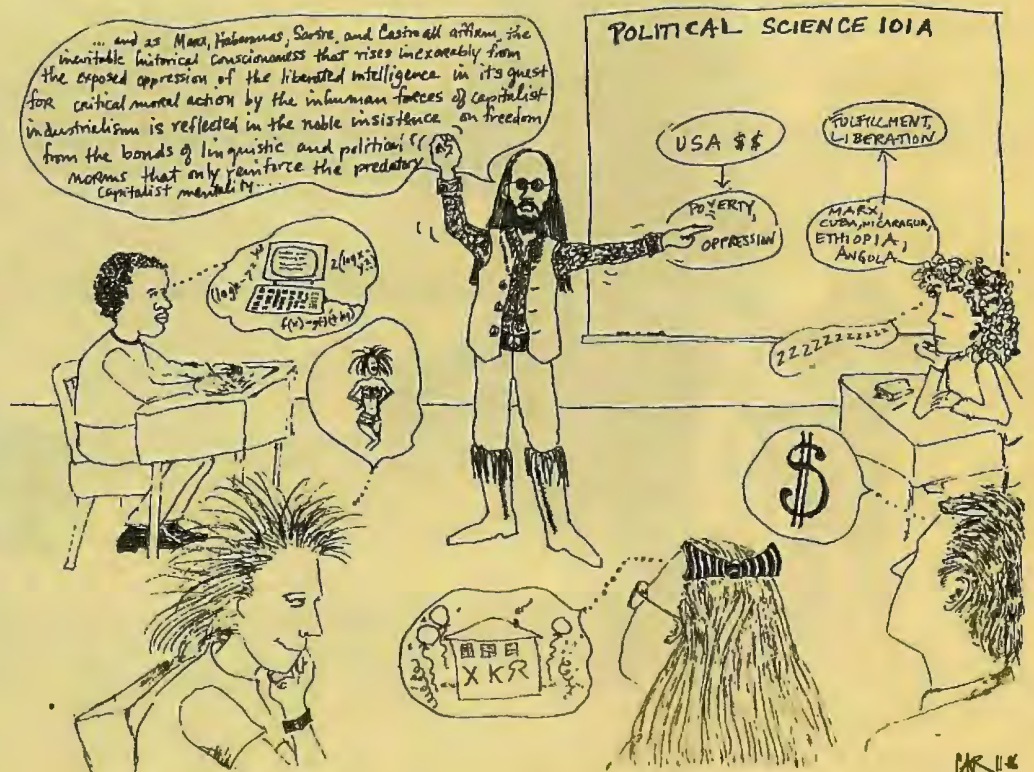 ... and as Marx, Habermas, Sartre, and Castro all affirm, the
inevitable historical consciousness that rises inexorably from
the exposed oppression of the liberated intelligence in it's quest
for critical moral action by the inhuman forces of capitalist
industrialism is reflected in the noble insistence on freedom
from the bonds of linguistic and political
norms that only reinforce the predatory
capitalist mentality....
POLITICAL SCIENCE 101A
USA $$
POVERTY,
OPPRESSION
FULFILLMENT,
LIBERATION
MARX,
CUBA, NICARAGUA,
ETHIOPIA,
ANGOLA
ZZZZZZZZZZZ
$
XKR